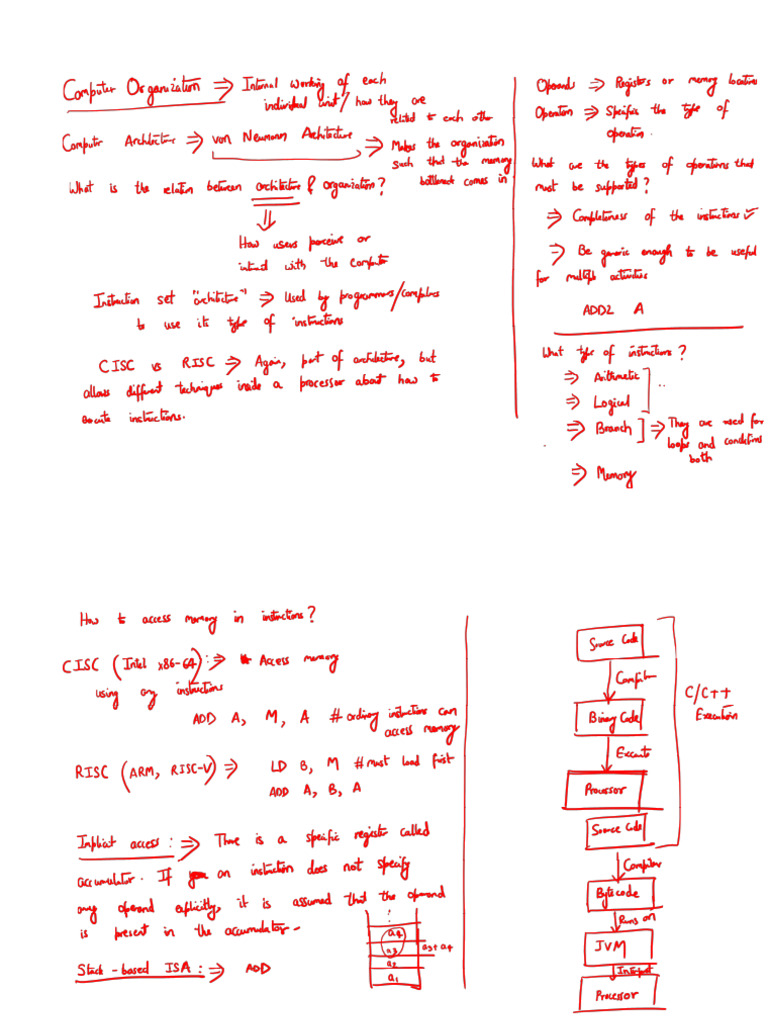 Computer Organization ⇒ Internal working of each
individual unit / how they are
related to each other
Computer Architecture ⇒ von Neumann Architecture ⇒ Makes the organization
such that the memory
bottleneck comes in
What is the relation between architecture & organization?
⇓
How users perceive or
interact with the computer
Instruction set "architecture" ⇒ Used by programmers/compilers
to use its type of instructions
CISC vs RISC ⇒ Again, part of architecture, but
allows different techniques inside a processor about how to
execute instructions.
Operands ⇒ Registers or memory locations
Operation ⇒ Specifies the type of
operation.
What are the types of operations that
must be supported?
⇒ Completeness of the instructions ✓
⇒ Be generic enough to be useful
for multiple activities
ADD2 A
What type of instructions?
⇒ Arithmetic
⇒ Logical ..
⇒ Branch ⇒ They are used for
loops and conditions
both
⇒ Memory
How to access memory in instructions?
CISC (Intel x86-64) :⇒ Access memory
using any instructions
ADD A, M, A # ordinary instructions can
access memory
RISC (ARM, RISC-V) ⇒ LD B, M # must load first
ADD A, B, A
Implicit access : ⇒ There is a specific register called
accumulator. If an instruction does not specify
any operand explicitly, it is assumed that the operand
is present in the accumulator.
Stack-based ISA : ⇒ ADD
⋮
a4
a3
a3 + a4
a2
a1
Source Code
Compiler
Binary Code
Execute
Processor
C/C++
Execution
Source Code
Compiler
Bytecode
Runs on
JVM
Interpret
Processor